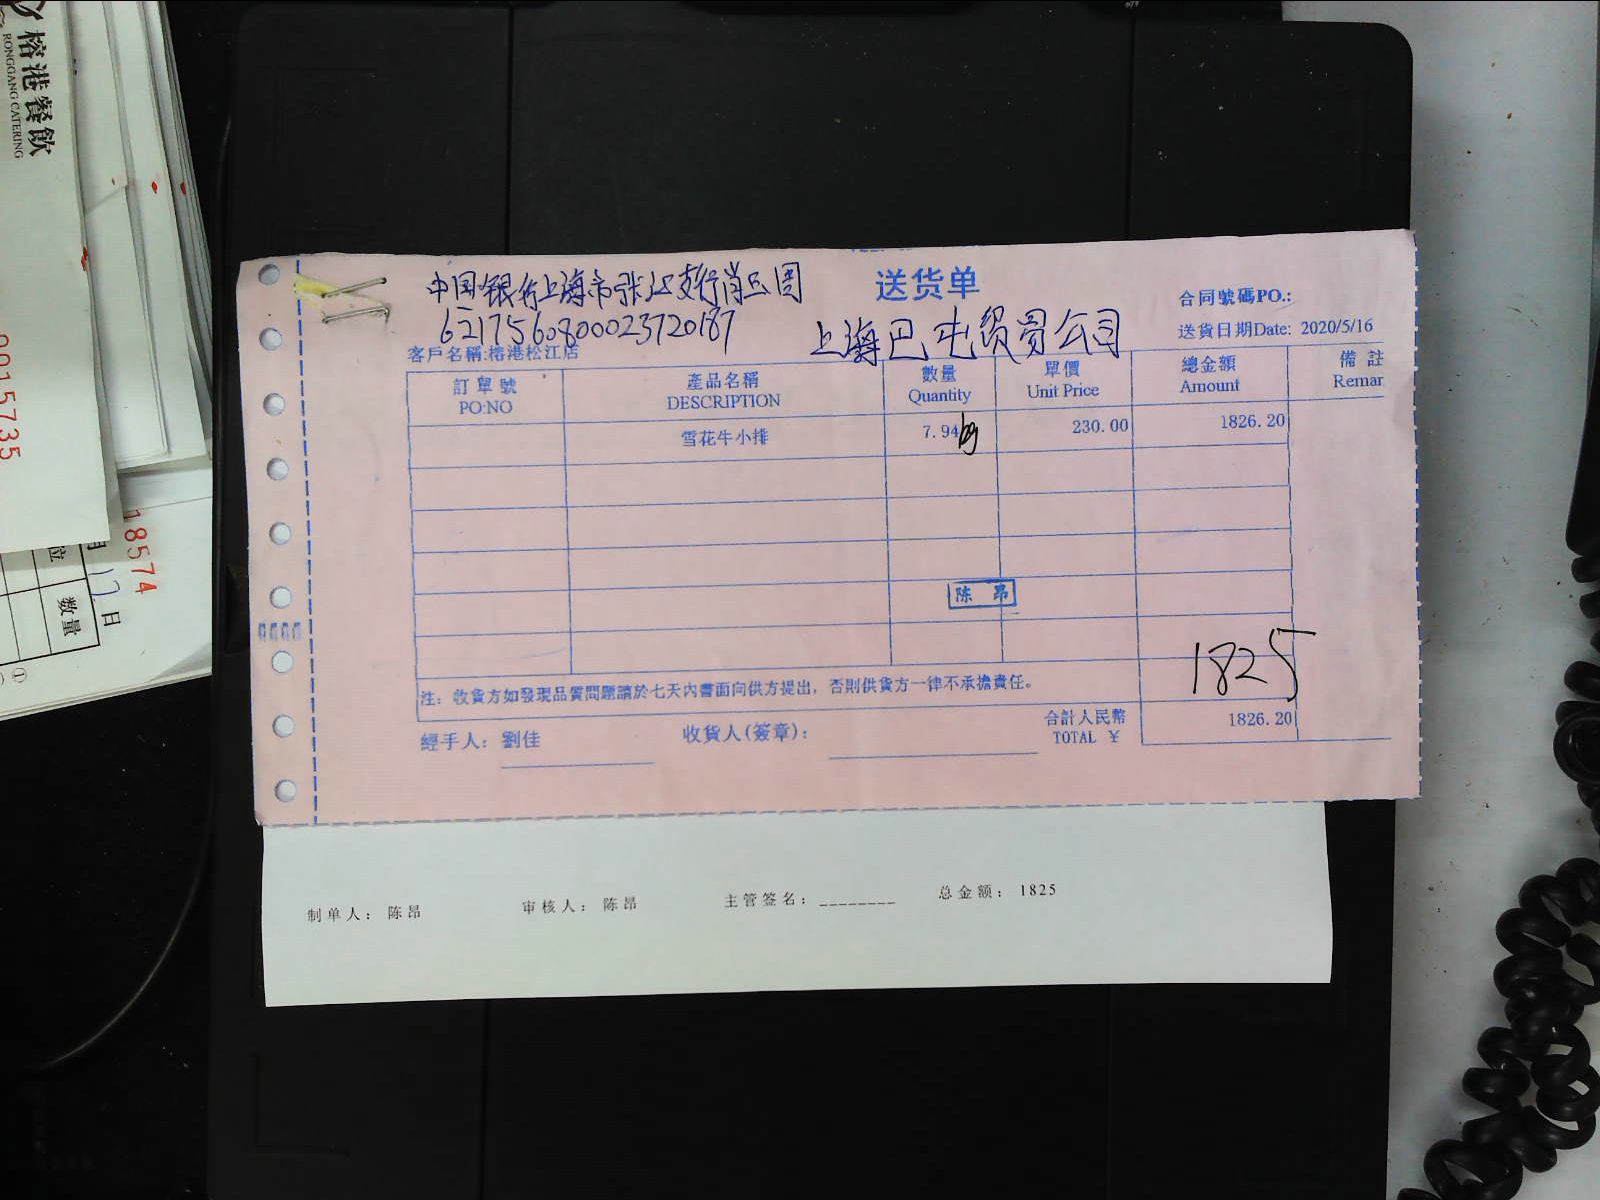 榕港餐飲
RONGGANG CATERING
0015735
18574
月 17 日
位 数量
①
送货单
中国银行上海市张江支行肖
6217560800023720187
上海巴屯贸易公司
合同號碼PO.:
送貨日期Date: 2020/5/16
客戶名稱:榕港松江店
訂單號 產品名稱 數量 單價 總金額 備註
PO:NO DESCRIPTION Quantity Unit Price Amount Remar
雪花牛小排 7.94kg 230.00 1826.20
陈 昂
1825
注: 收貨方如發現品質問題請於七天內書面向供方提出, 否則供貨方一律不承擔責任。
合計人民幣 1826.20
TOTAL ¥
經手人: 劉佳 收貨人(簽章):
制单人: 陈昂 审核人: 陈昂 主管签名:________ 总金额: 1825